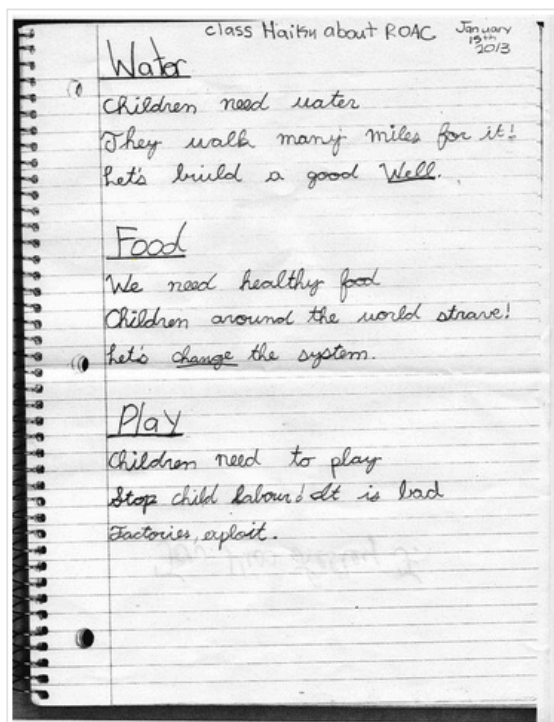 class Haiku about ROAC
January
15th
2013
Water
Children need water
They walk many miles for it!
Let's build a good Well.
Food
We need healthy food
Children around the world strave!
Let's change the system.
Play
Children need to play
Stop child labour! It is bad
Factories, exploit.